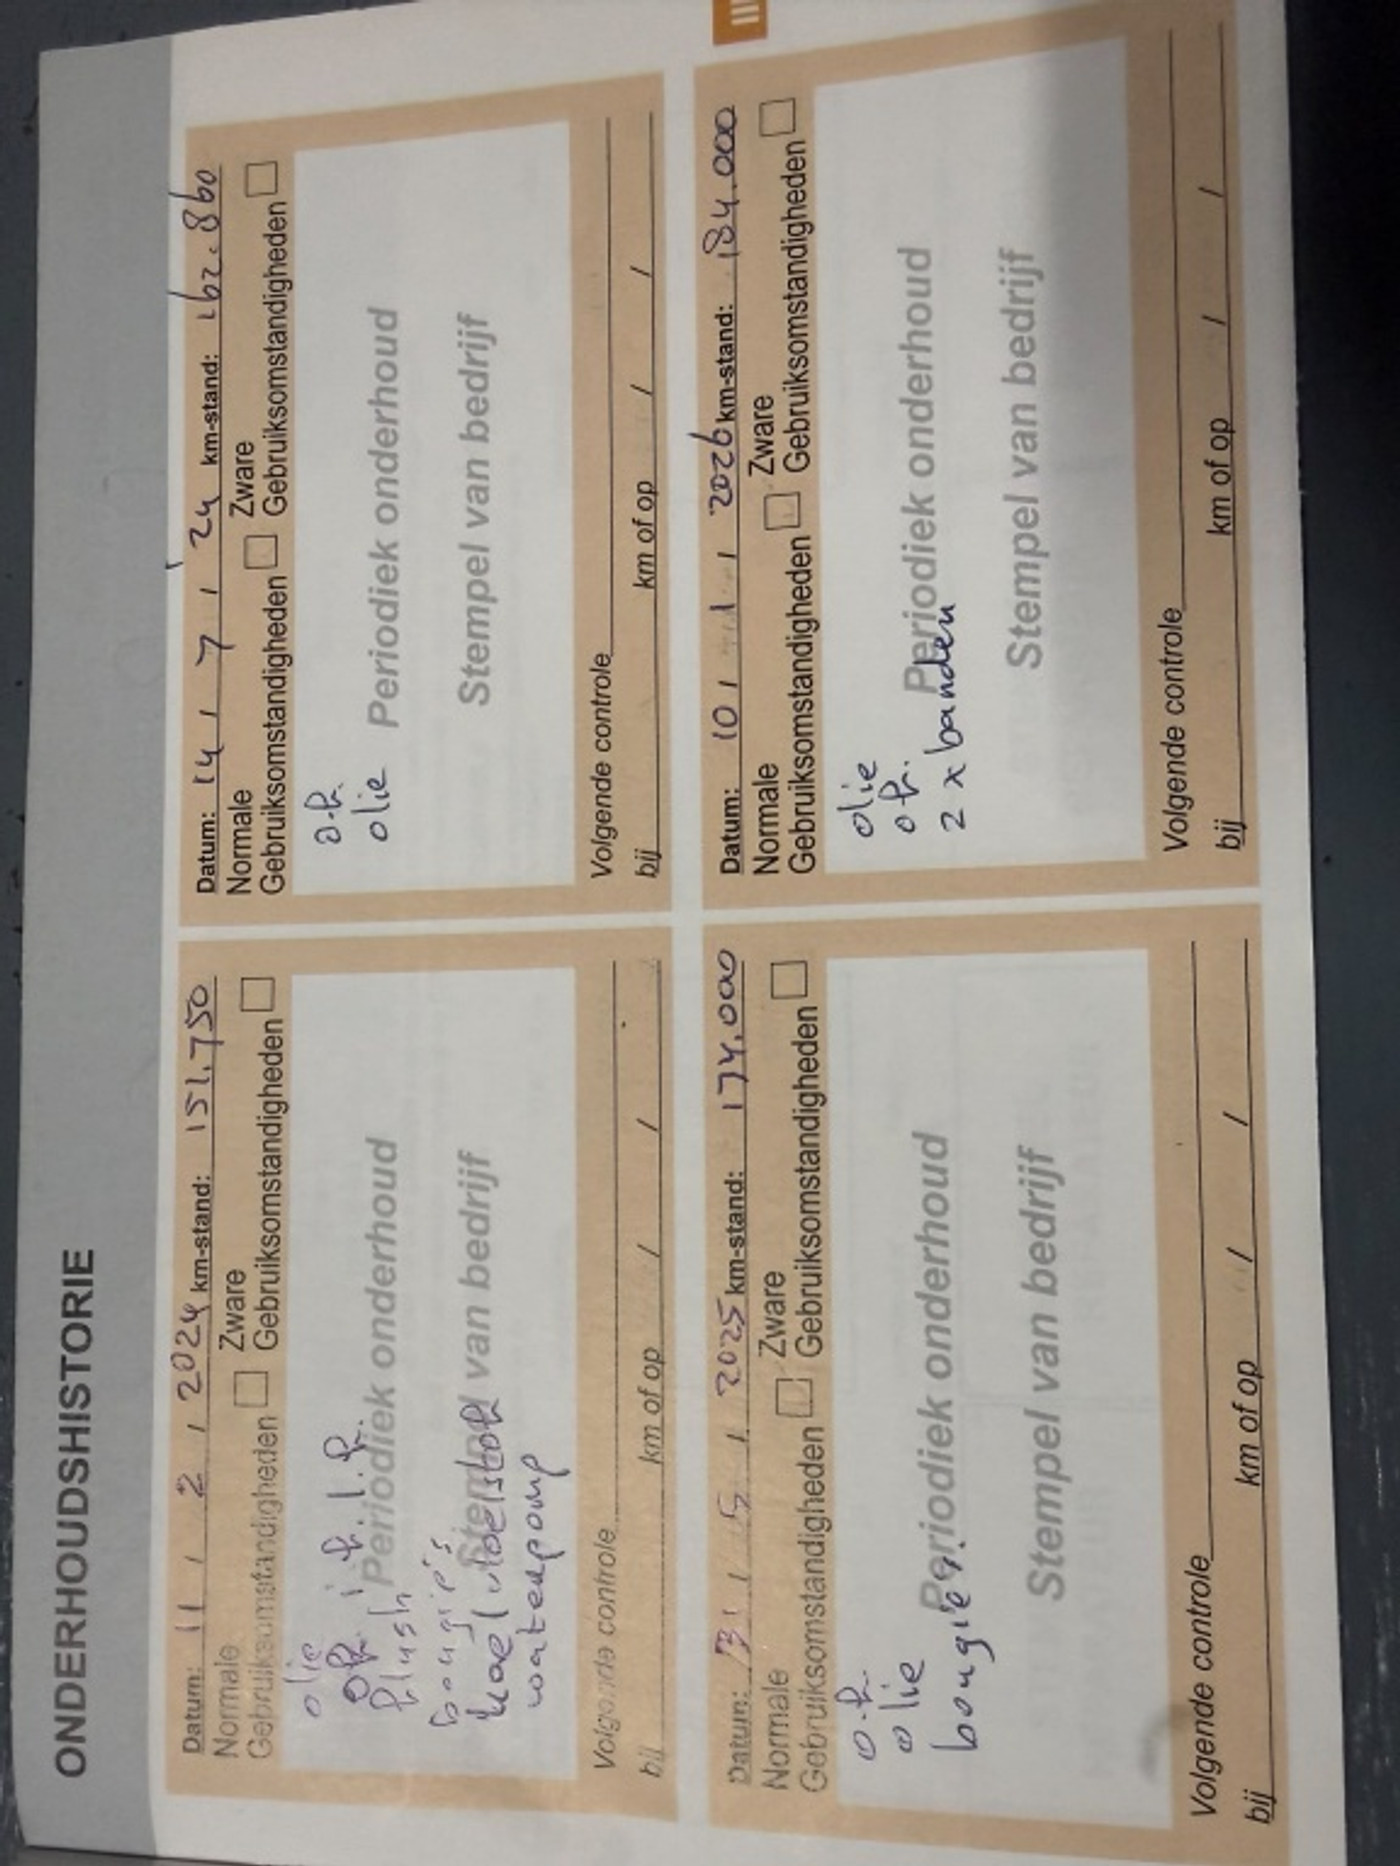 ONDERHOUDSHISTORIE
Datum: 11 / 2 / 2024 km-stand: 151.750
Normale Zware
Gebruiksomstandigheden Gebruiksomstandigheden
olie
o.f. i.f. l.f.
flush
Periodiek onderhoud
bougie's
Stempel van bedrijf
koelvloeistof
waterpomp
Volgende controle
bij km of op / /
Datum: 14 / 7 / 24 km-stand: 162.860
Normale Zware
Gebruiksomstandigheden Gebruiksomstandigheden
o.f.
olie Periodiek onderhoud
Stempel van bedrijf
Volgende controle
bij km of op / /
Datum: 31 / 5 / 2025 km-stand: 174.000
Normale Zware
Gebruiksomstandigheden Gebruiksomstandigheden
o.f.
olie
Periodiek onderhoud
bougies.
Stempel van bedrijf
Volgende controle
bij km of op / /
III
Datum: 10 / 1 / 2026 km-stand: 184.000
Normale Zware
Gebruiksomstandigheden Gebruiksomstandigheden
olie
o f.
Periodiek onderhoud
2 x banden
Stempel van bedrijf
Volgende controle
bij km of op / /